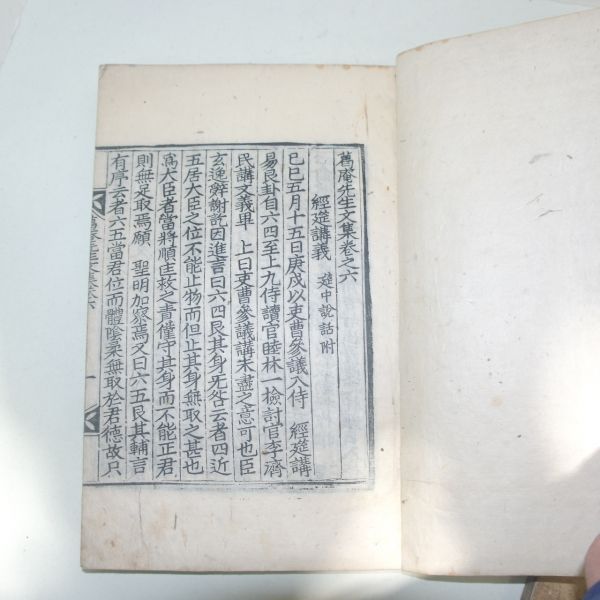 葛庵先生文集卷之六
經筵講義 筵中說話附
己巳五月十五日庚戌以吏曹參議入侍 經筵講
易艮卦自六四至上九侍讀官睦林一檢討官李濟
民講文義畢 上曰吏曹參議講未盡之意可也臣
玄逸辭謝訖因進言曰六四艮其身无咎云者四近
五居大臣之位不能止物而但止其身無取之甚也
爲大臣者當將順匡救之責僅守其身而不能正君
則無足取焉願 聖明加察焉又曰六五艮其輔言
有序云者六五當君位而體陰柔無取於君德故只